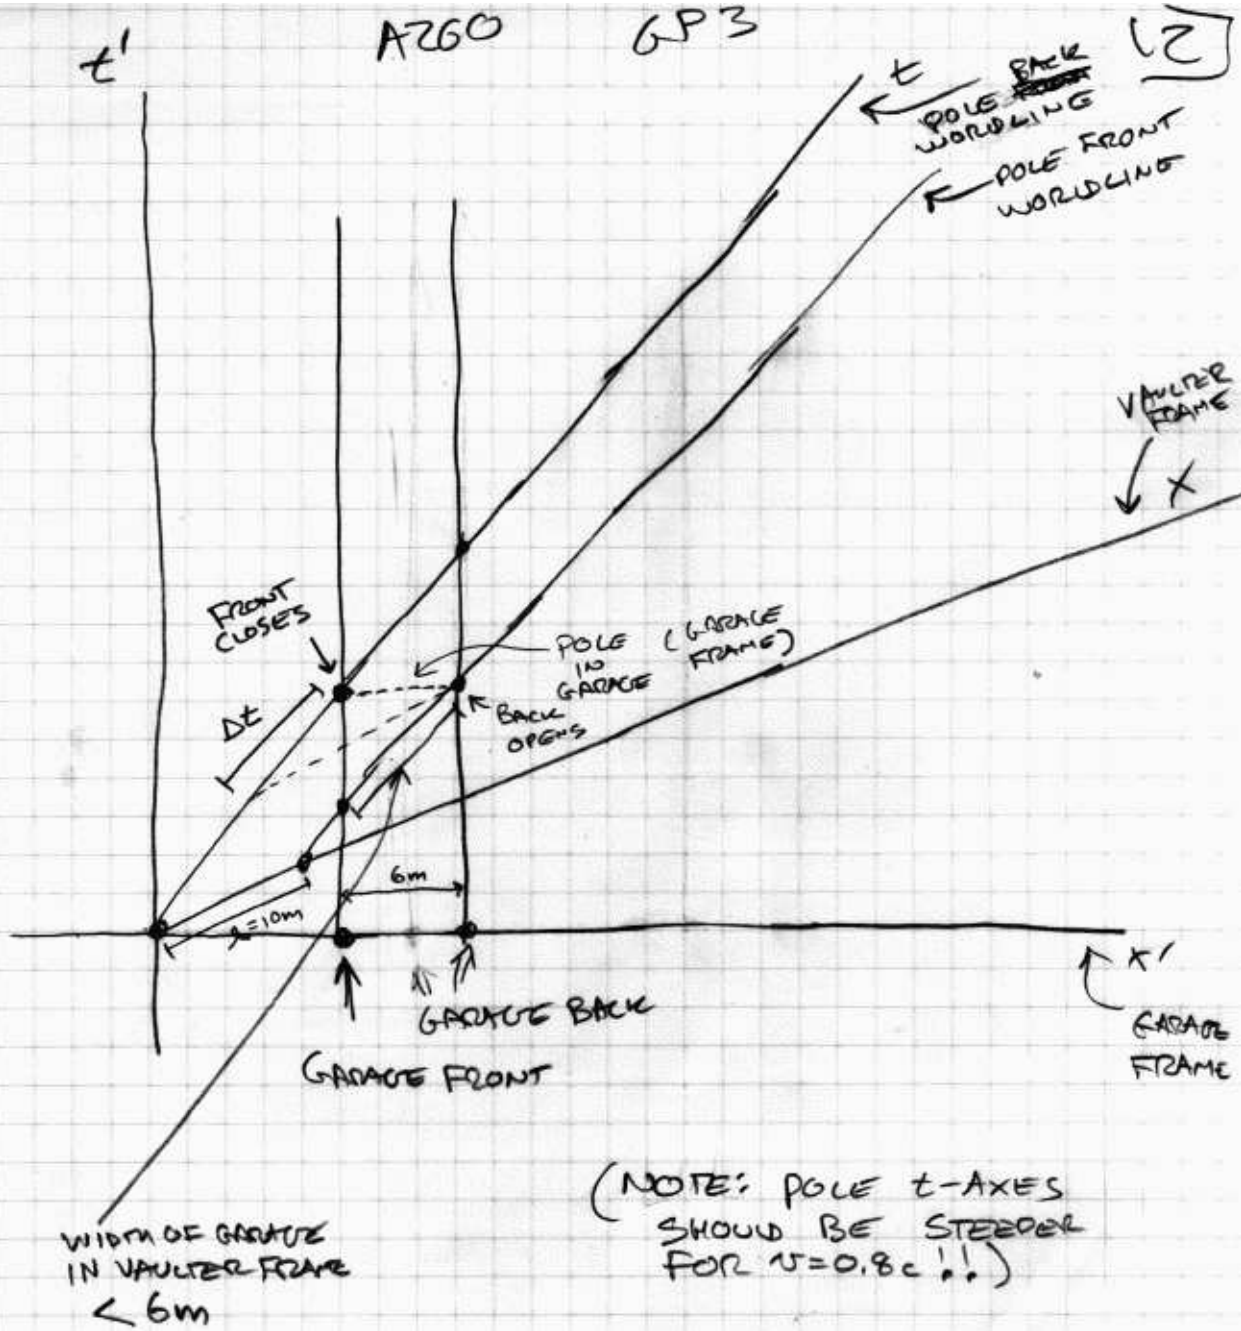 A260 GP3 12
t'
t
BACK
POLE
WORLDLINE
POLE FRONT
WORLDLINE
VAULTER
FRAME
X
FRONT
CLOSES
POLE (GARAGE
IN FRAME)
GARAGE
Δt
BACK
OPENS
6m
l=10m
x'
GARAGE BACK
GARAGE
FRAME
GARAGE FRONT
(NOTE: POLE t-AXES
SHOULD BE STEEPER
FOR v=0.8c!!)
WIDTH OF GARAGE
IN VAULTER FRAME
< 6m